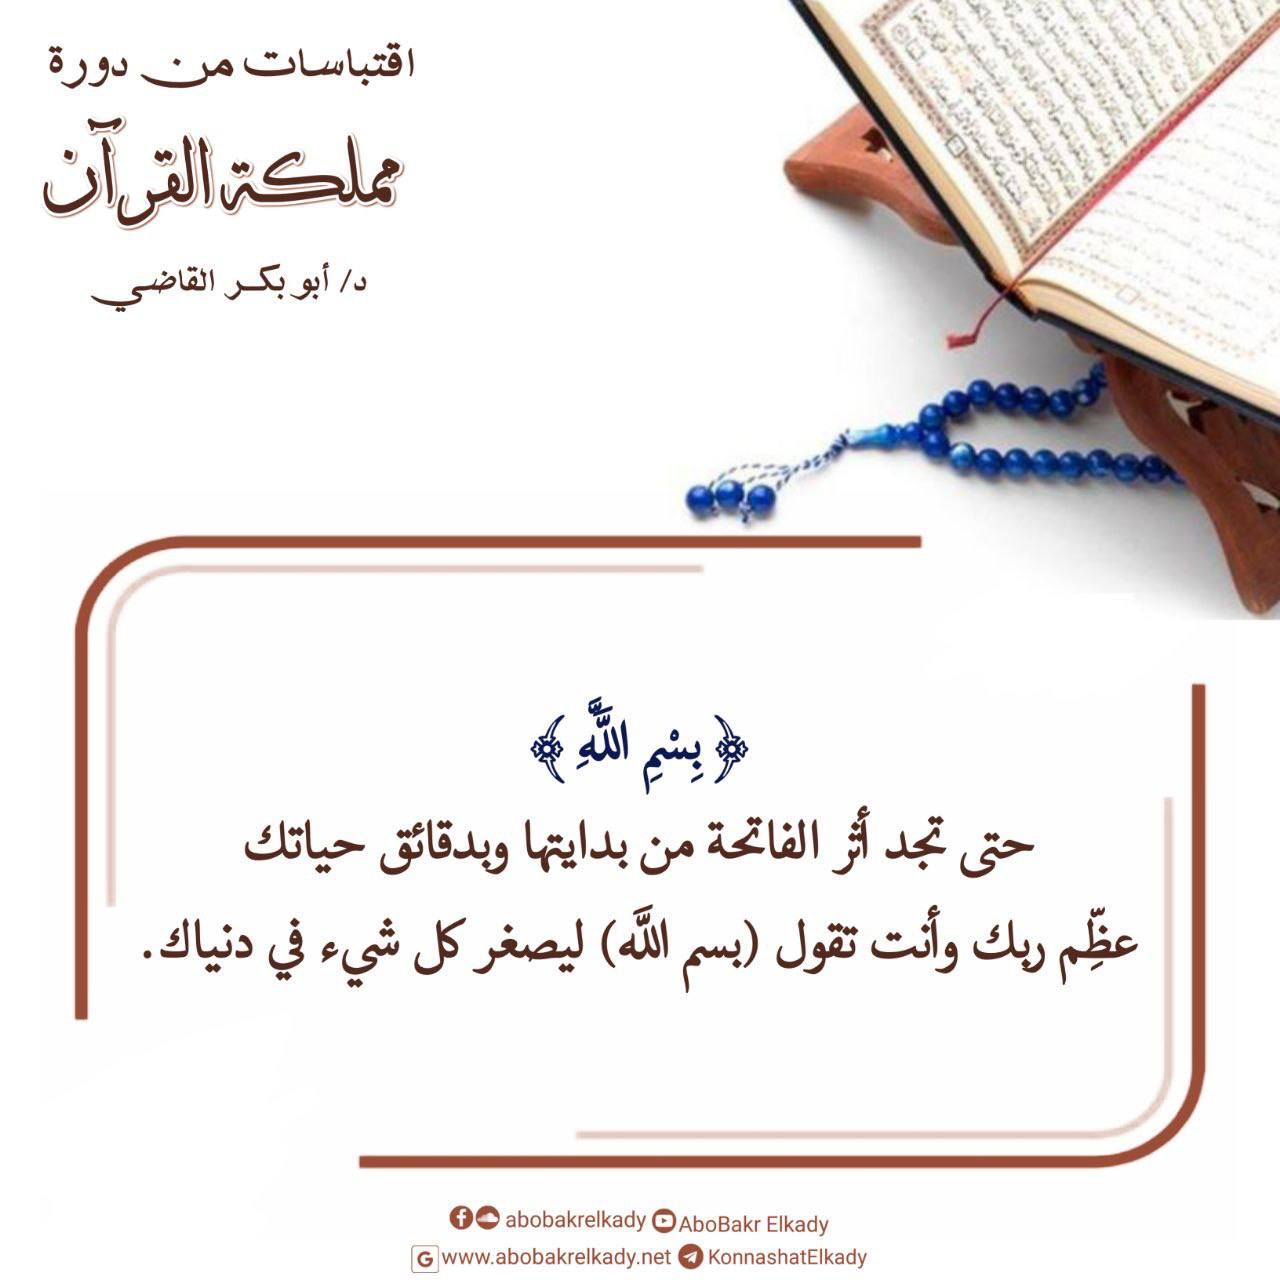 اقتباسات من دورة
مملكة القرآن
د/ أبو بكر القاضي
﴿ بِسْمِ اللَّهِ ﴾
حتى تجد أثر الفاتحة من بدايتها وبدقائق حياتك
عظِّم ربك وأنت تقول (بسم اللَّه) ليصغر كل شيء في دنياك.
abobakrelkady AboBakr Elkady
www.abobakrelkady.net KonnashatElkady